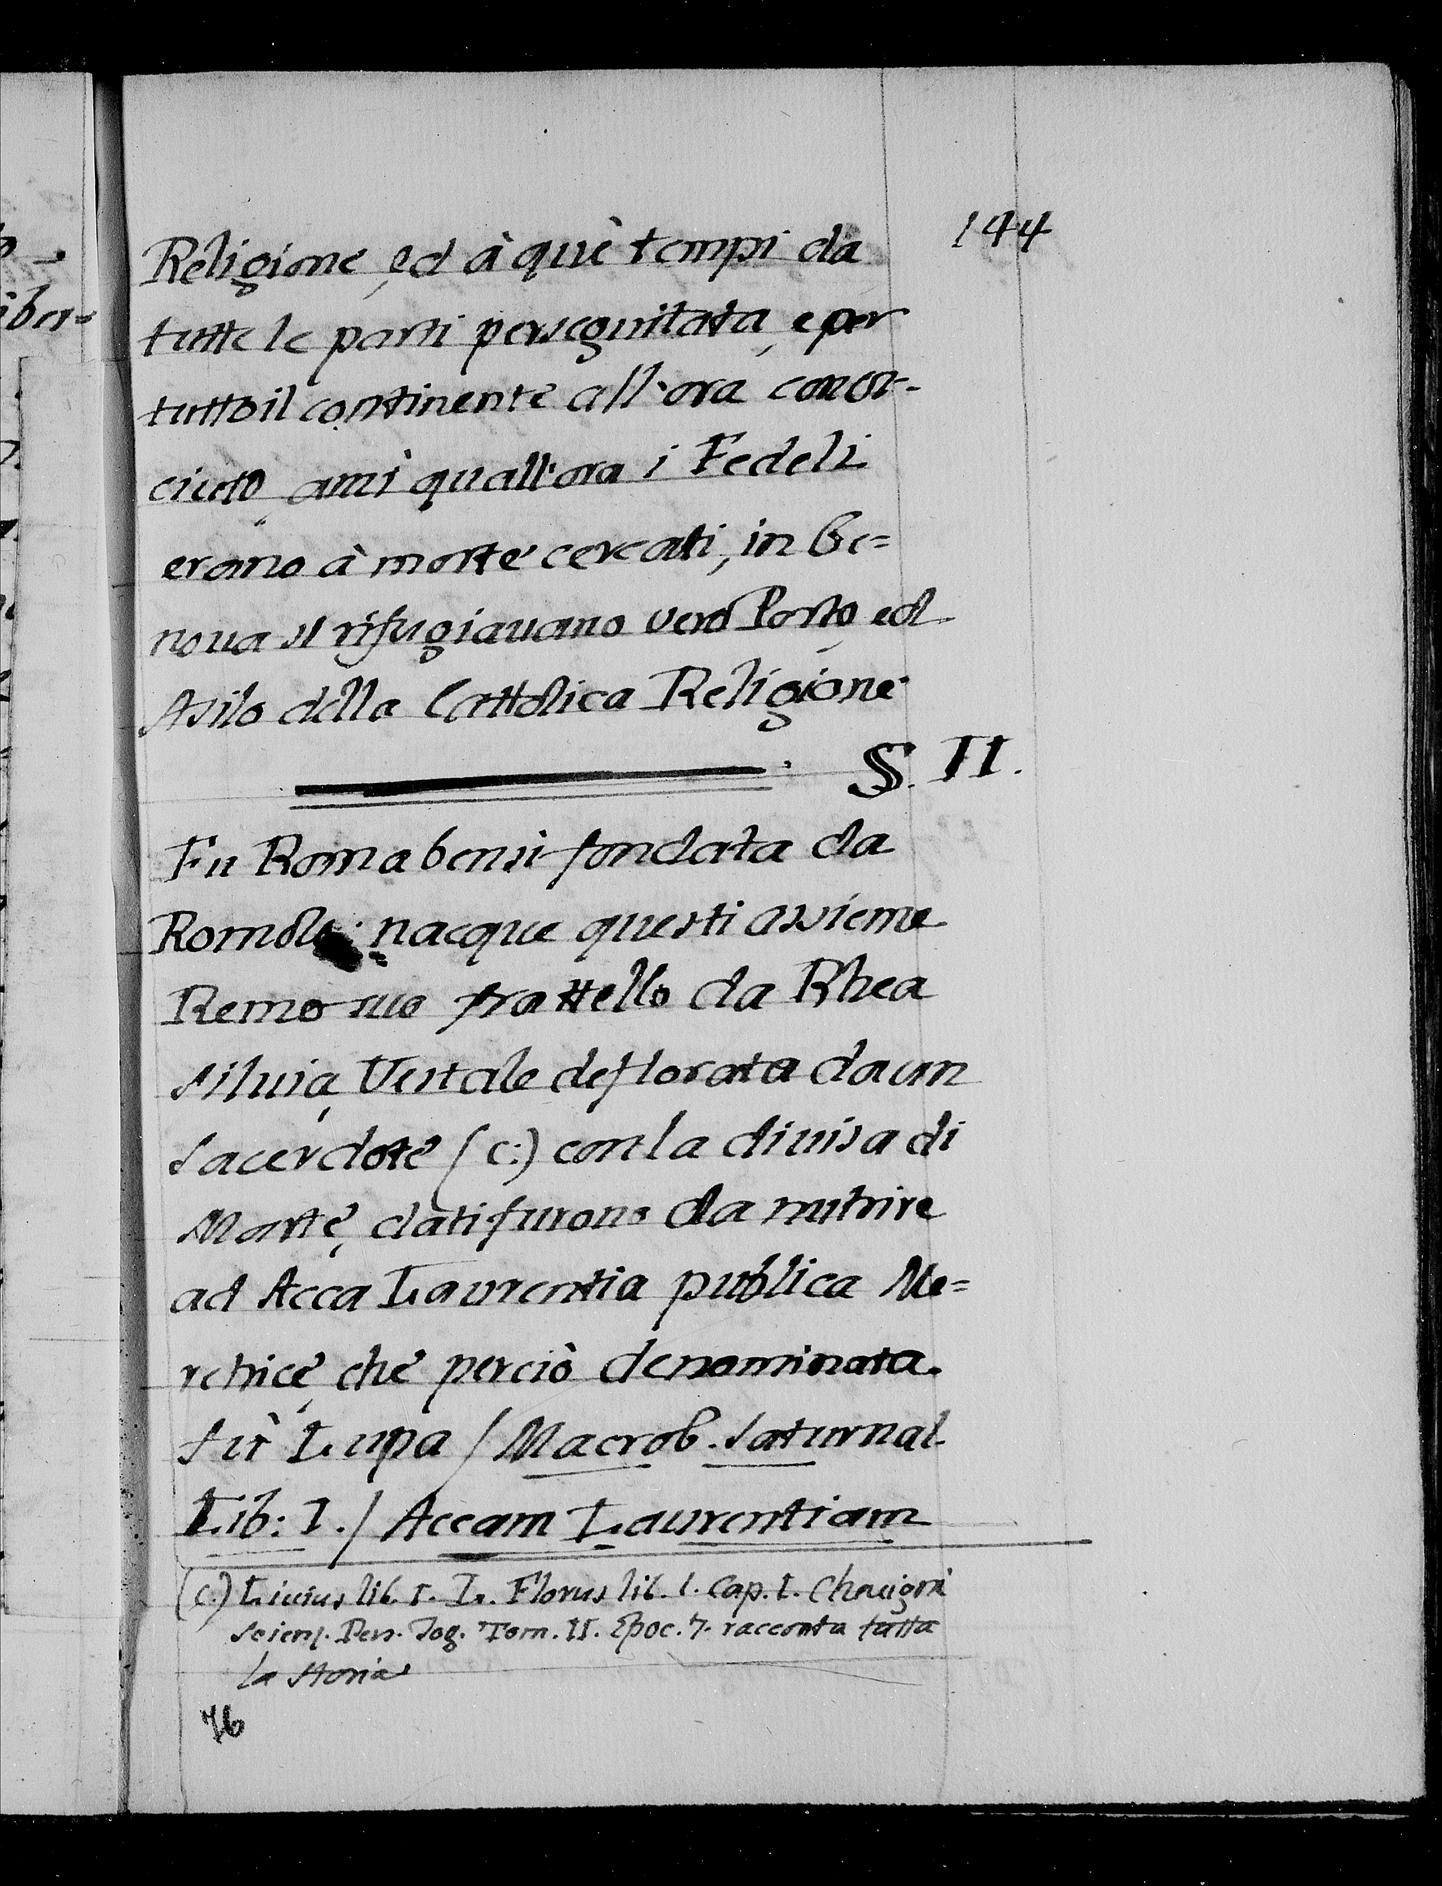 144
Religione, ed à què tempi da
tutte le parti perseguitata, e per
tutto il continente all'ora conos-
ciuto, anzi quall'ora i Fedeli
erano à morte cercati, in Ge=
noua si rifugiauano vero Porto, ed
Asilo della Cattolica Religione
§. II.
Fu Roma bensì fondata da
Romolo: nacque questi assieme
Remo suo frattello da Rhea
Siluia, Vestale deflorata da un
Sacerdote (c:) con la diuisa di
Marte, dati furono da nutrire
ad Acca Laurentia publica Me=
retrice, che perciò denominata
fù Lupa / Macrob. Saturnal.
Lib: I. / Accam Laurentiam
(c:) Liuius lib. I. L. Florus lib. I. Cap. I. Chauigni
Scienz. Per. Tom. II. Epoc. 7. racconta tutta
la storia
76
iber=